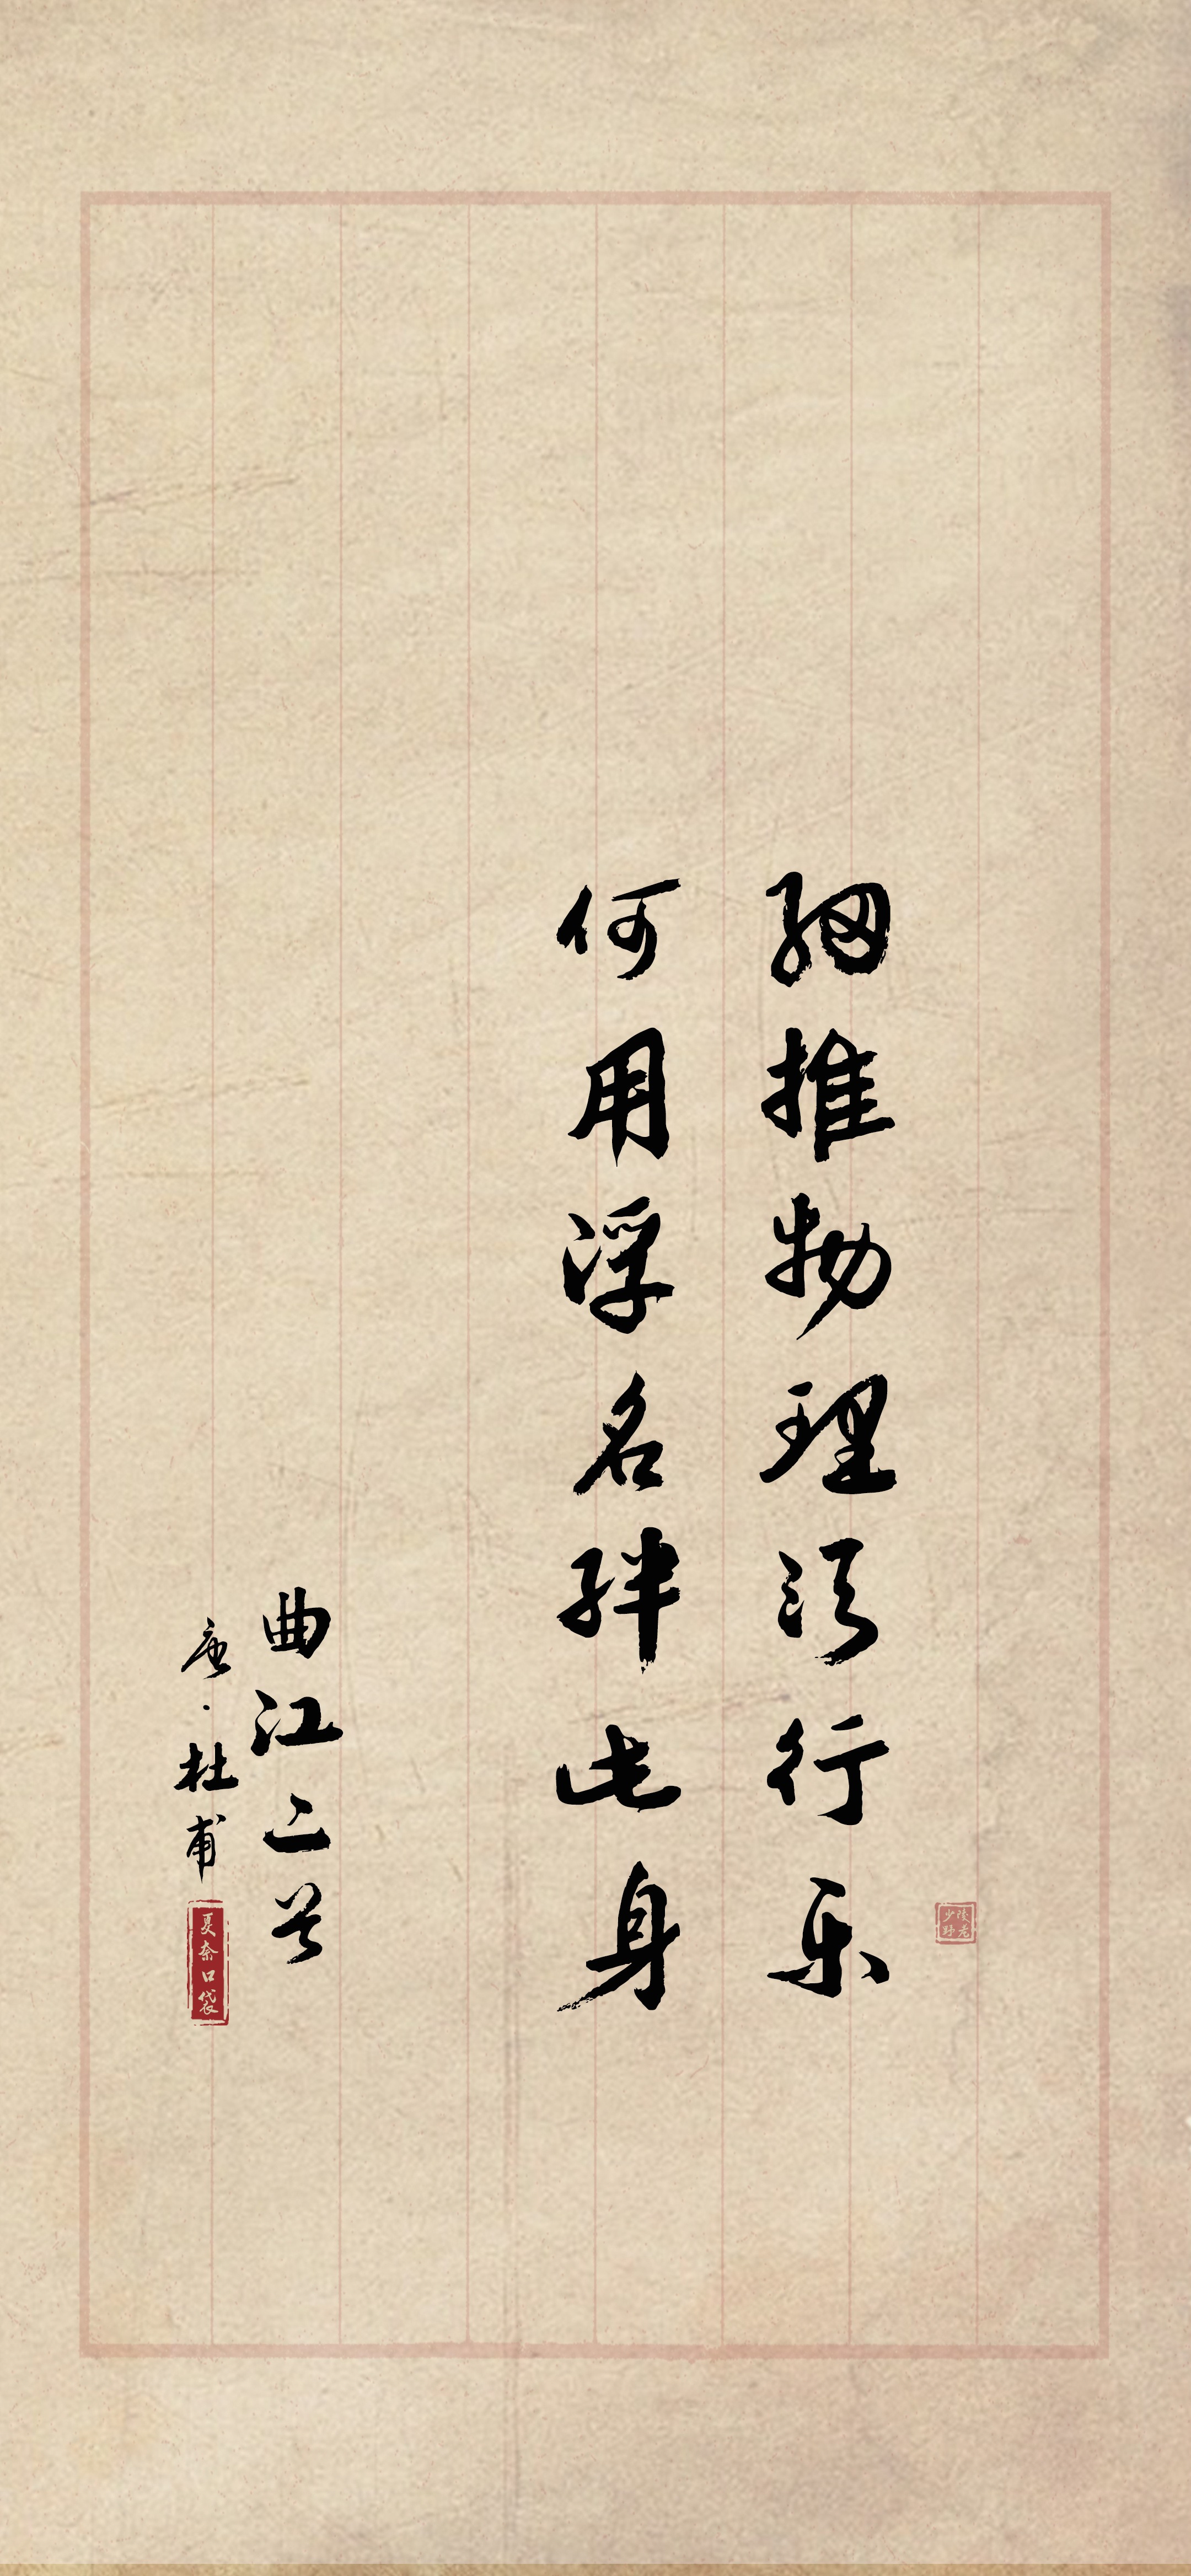 细推物理须行乐
何用浮名绊此身
曲江二首
唐·杜甫
夏奈口袋